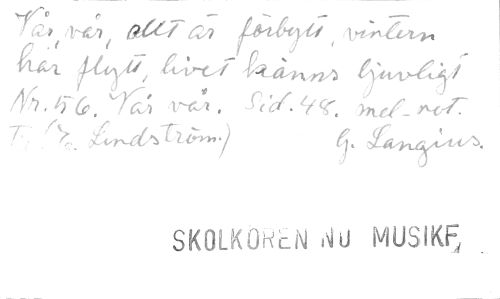 Vår, vår, allt är förbytt, vintern
har flytt, livet känns ljuvligt
Nr. 56. Vår vår. Sid. 48. mel-not.
T. (J. Lindström.) G. Langius.
SKOLKÖREN NU MUSIKF,